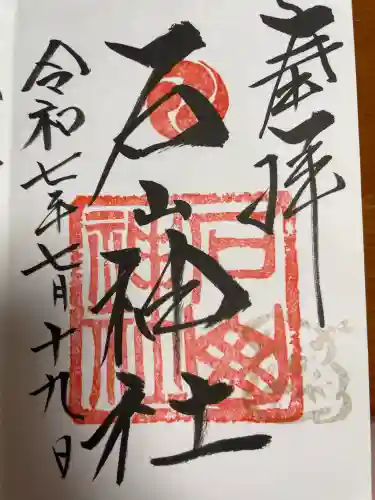 奉拝
石山神社
令和七年七月十九日